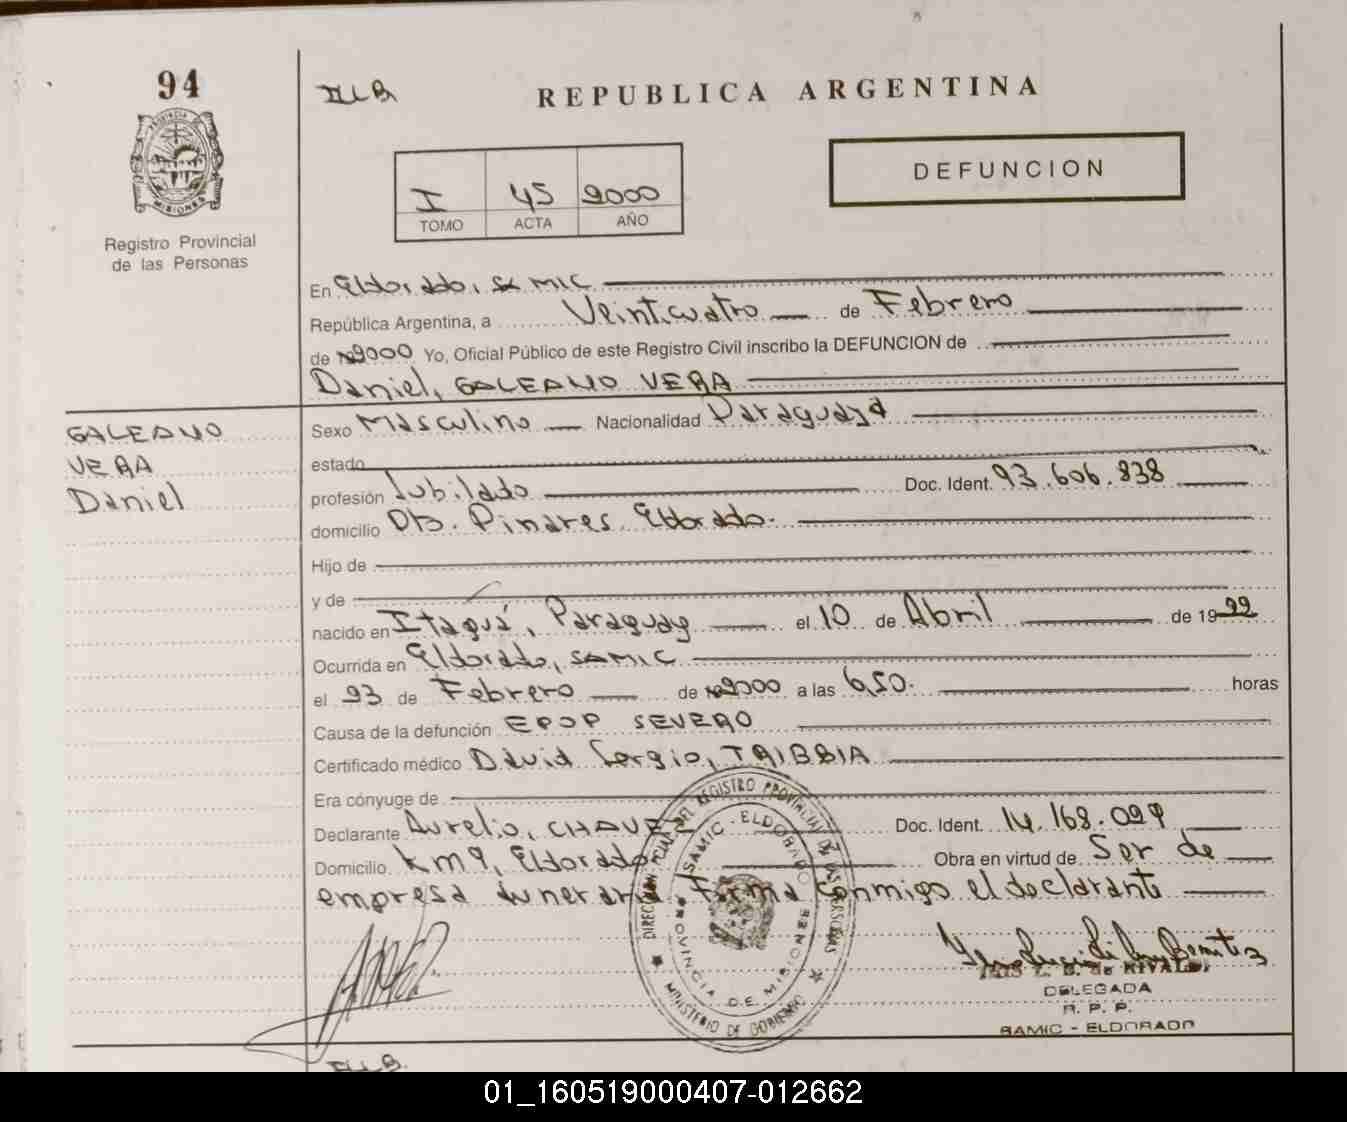 94
REPUBLICA ARGENTINA
DEFUNCION
I 45 2000
TOMO ACTA AÑO
PROVINCIA
MISIONES
Registro Provincial
de las Personas
En Eldorado, SAMIC
República Argentina, a Veinticuatro de Febrero
de 2000 Yo, Oficial Público de este Registro Civil inscribo la DEFUNCION de
Daniel, GALEANO VERA
GALEANO
VERA
Daniel
Sexo Masculino Nacionalidad Paraguaya
estado
profesión Jubilado Doc. Ident. 93.606.838
domicilio Pinares Eldorado.
Hijo de
y de
nacido en Itaguá, Paraguay el 10 de Abril de 1922
Ocurrida en Eldorado, SAMIC
el 23 de Febrero de 2000 a las 6,50. horas
Causa de la defunción EPOP SEVERO
Certificado médico David Sergio, TRIBBIA
Era cónyuge de
Declarante Aurelio, CHAVEZ Doc. Ident. 14.168.029
Domicilio km 9, Eldorado Obra en virtud de Ser de
empresa funeraria Firma conmigo el declarante
DIRECCION PCIAL DEL REGISTRO PROVINCIAL DE LAS PERSONAS
SAMIC - ELDORADO
PROVINCIA DE MISIONES
MINISTERIO DE GOBIERNO
DELEGADA
R. P. P.
SAMIC - ELDORADO
01_160519000407-012662